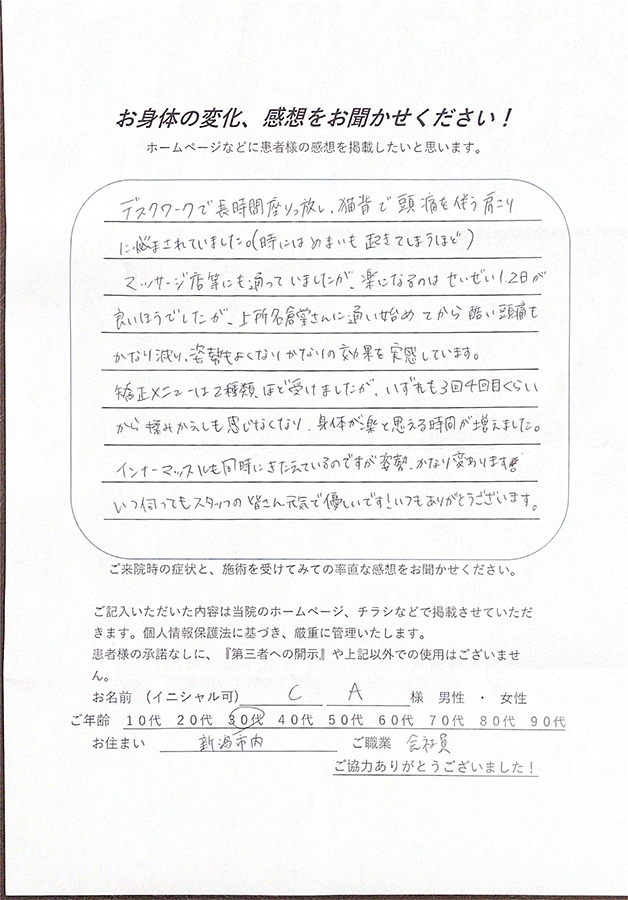 お身体の変化、感想をお聞かせください！
ホームページなどに患者様の感想を掲載したいと思います。
デスクワークで長時間座りっ放し、猫背で頭痛を伴う肩こり
に悩まされていました。(時にはめまいも起きてしまうほど)
マッサージ店等にも通っていましたが、楽になるのはせいぜい1.2日が
良いほうでしたが、上所名倉堂さんに通い始めてから酷い頭痛も
かなり減り、姿勢もよくなりかなりの効果を実感しています。
矯正メニューは2種類ほど受けましたが、いずれも3回4回目くらい
から揉みかえしも感じなくなり、身体が楽と思える時間が増えました。
インナーマッスルも同時にきたえているのですが姿勢、かなり変わります!
いつ伺ってもスタッフの皆さん元気で優しいです!いつもありがとうございます。
ご来院時の症状と、施術を受けてみての率直な感想をお聞かせください。
ご記入いただいた内容は当院のホームページ、チラシなどで掲載させていただ
きます。個人情報保護法に基づき、厳重に管理いたします。
患者様の承諾なしに、『第三者への開示』や上記以外での使用はございませ
ん。
お名前 (イニシャル可) C A 様 男性 ・ 女性
ご年齢 10代 20代 30代 40代 50代 60代 70代 80代 90代
お住まい 新潟市内 ご職業 会社員
ご協力ありがとうございました！